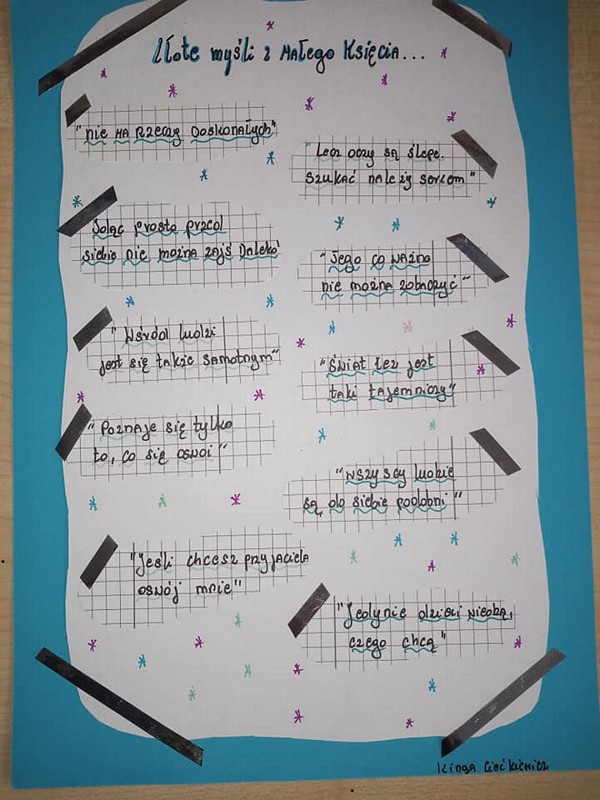 Złote myśli z Małego Księcia...
"Nie ma rzeczy doskonałych"
"Lecz oczy są ślepe.
Szukać należy sercem"
Idąc prosto przed
siebie nie można zajś daleko
"Tego co ważne
nie można zobaczyć"
"Wśród ludzi
jest się także samotnym"
"Świat łez jest
taki tajemniczy"
"Poznaje się tylko
to, co się oswoi"
"Wszyscy ludzie
są do siebie podobni"
"Jeśli chcesz przyjaciela
oswój mnie"
"Jedynie dzieci wiedzą,
czego chcą"
Kinga